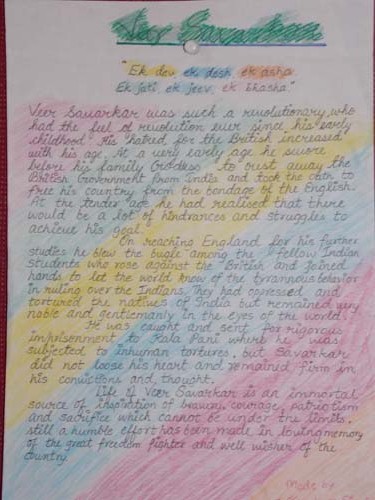 Veer Savarkar
"Ek dev ek desh ek asha
Ek jati, ek jeev, ek bhasha."
Veer Savarkar was such a revolutionary who
had the feel of revolution ever since his early
childhood. His hatred for the British increased
with his age. At a very early age he swore
before his family Godess to oust away the
British Government from India and took the oath to
free his country from the bondage of the English.
At the tender age he had realised that there
would be a lot of hindrances and struggles to
achieve his goal.
On reaching England for his further
studies he blew the bugle among the fellow Indian
students who rose against the British and joined
hands to let the world know of the tyrannous behavior
in ruling over the Indians. They had opressed and
tortured the natives of India but remained very
noble and gentlemanly in the eyes of the world.
He was caught and sent for rigorous
imprisonment to Kala Pani where he was
subjected to inhuman tortures, but Savarkar
did not loose his heart and remained firm in
his convictions and thought.
Life of Veer Savarkar is an immortal
source of inspiration of bravery, courage, patriotism
and sacrifice which cannot be under the limits.
still a humble effort has been made in loving memory
of the great freedom fighter and well wisher of the
country.
Made by